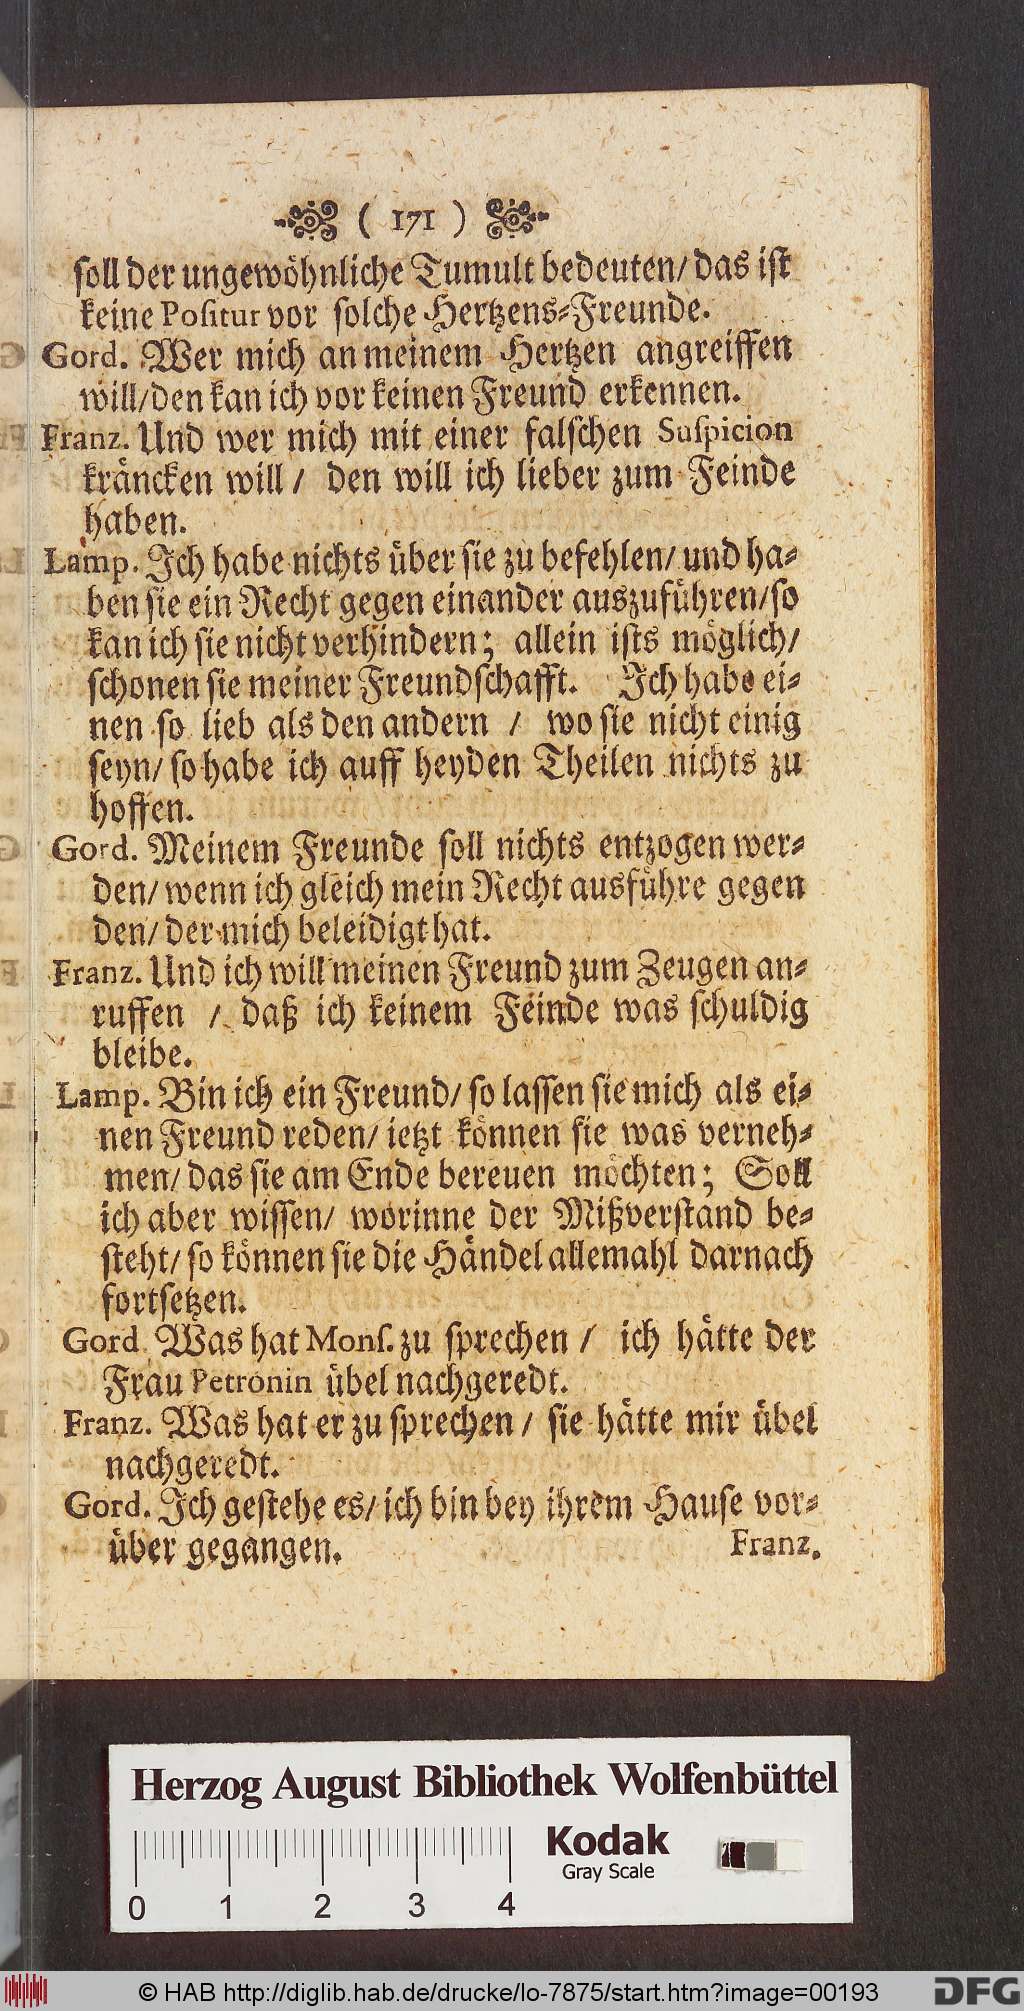 ( 171 )
soll der ungewöhnliche Tumult bedeuten/ das ist
keine Positur vor solche Hertzens-Freunde.
Gord. Wer mich an meinem Hertzen angreiffen
will/ den kan ich vor keinen Freund erkennen.
Franz. Und wer mich mit einer falschen Suspicion
kräncken will/ den will ich lieber zum Feinde
haben.
Lamp. Ich habe nichts über sie zu befehlen/ und ha-
ben sie ein Recht gegen einander auszuführen/ so
kan ich sie nicht verhindern; allein ists möglich/
schonen sie meiner Freundschafft. Ich habe ei-
nen so lieb als den andern / wo sie nicht einig
seyn/ so habe ich auff heyden Theilen nichts zu
hoffen.
Gord. Meinem Freunde soll nichts entzogen wer-
den/ wenn ich gleich mein Recht ausführe gegen
den/ der mich beleidigt hat.
Franz. Und ich will meinen Freund zum Zeugen an-
ruffen / daß ich keinem Feinde was schuldig
bleibe.
Lamp. Bin ich ein Freund/ so lassen sie mich als ei-
nen Freund reden/ ietzt können sie was verneh-
men/ das sie am Ende bereuen möchten; Soll
ich aber wissen/ worinne der Mißverstand be-
steht/ so können sie die Händel allemahl darnach
fortsetzen.
Gord. Was hat Mons. zu sprechen / ich hätte der
Frau Petronin übel nachgeredt.
Franz. Was hat er zu sprechen / sie hätte mir übel
nachgeredt.
Gord. Ich gestehe es/ ich bin bey ihrem Hause vor-
über gegangen.
Franz.
Herzog August Bibliothek Wolfenbüttel
Kodak
Gray Scale
0 1 2 3 4
© HAB http://diglib.hab.de/drucke/lo-7875/start.htm?image=00193
DFG